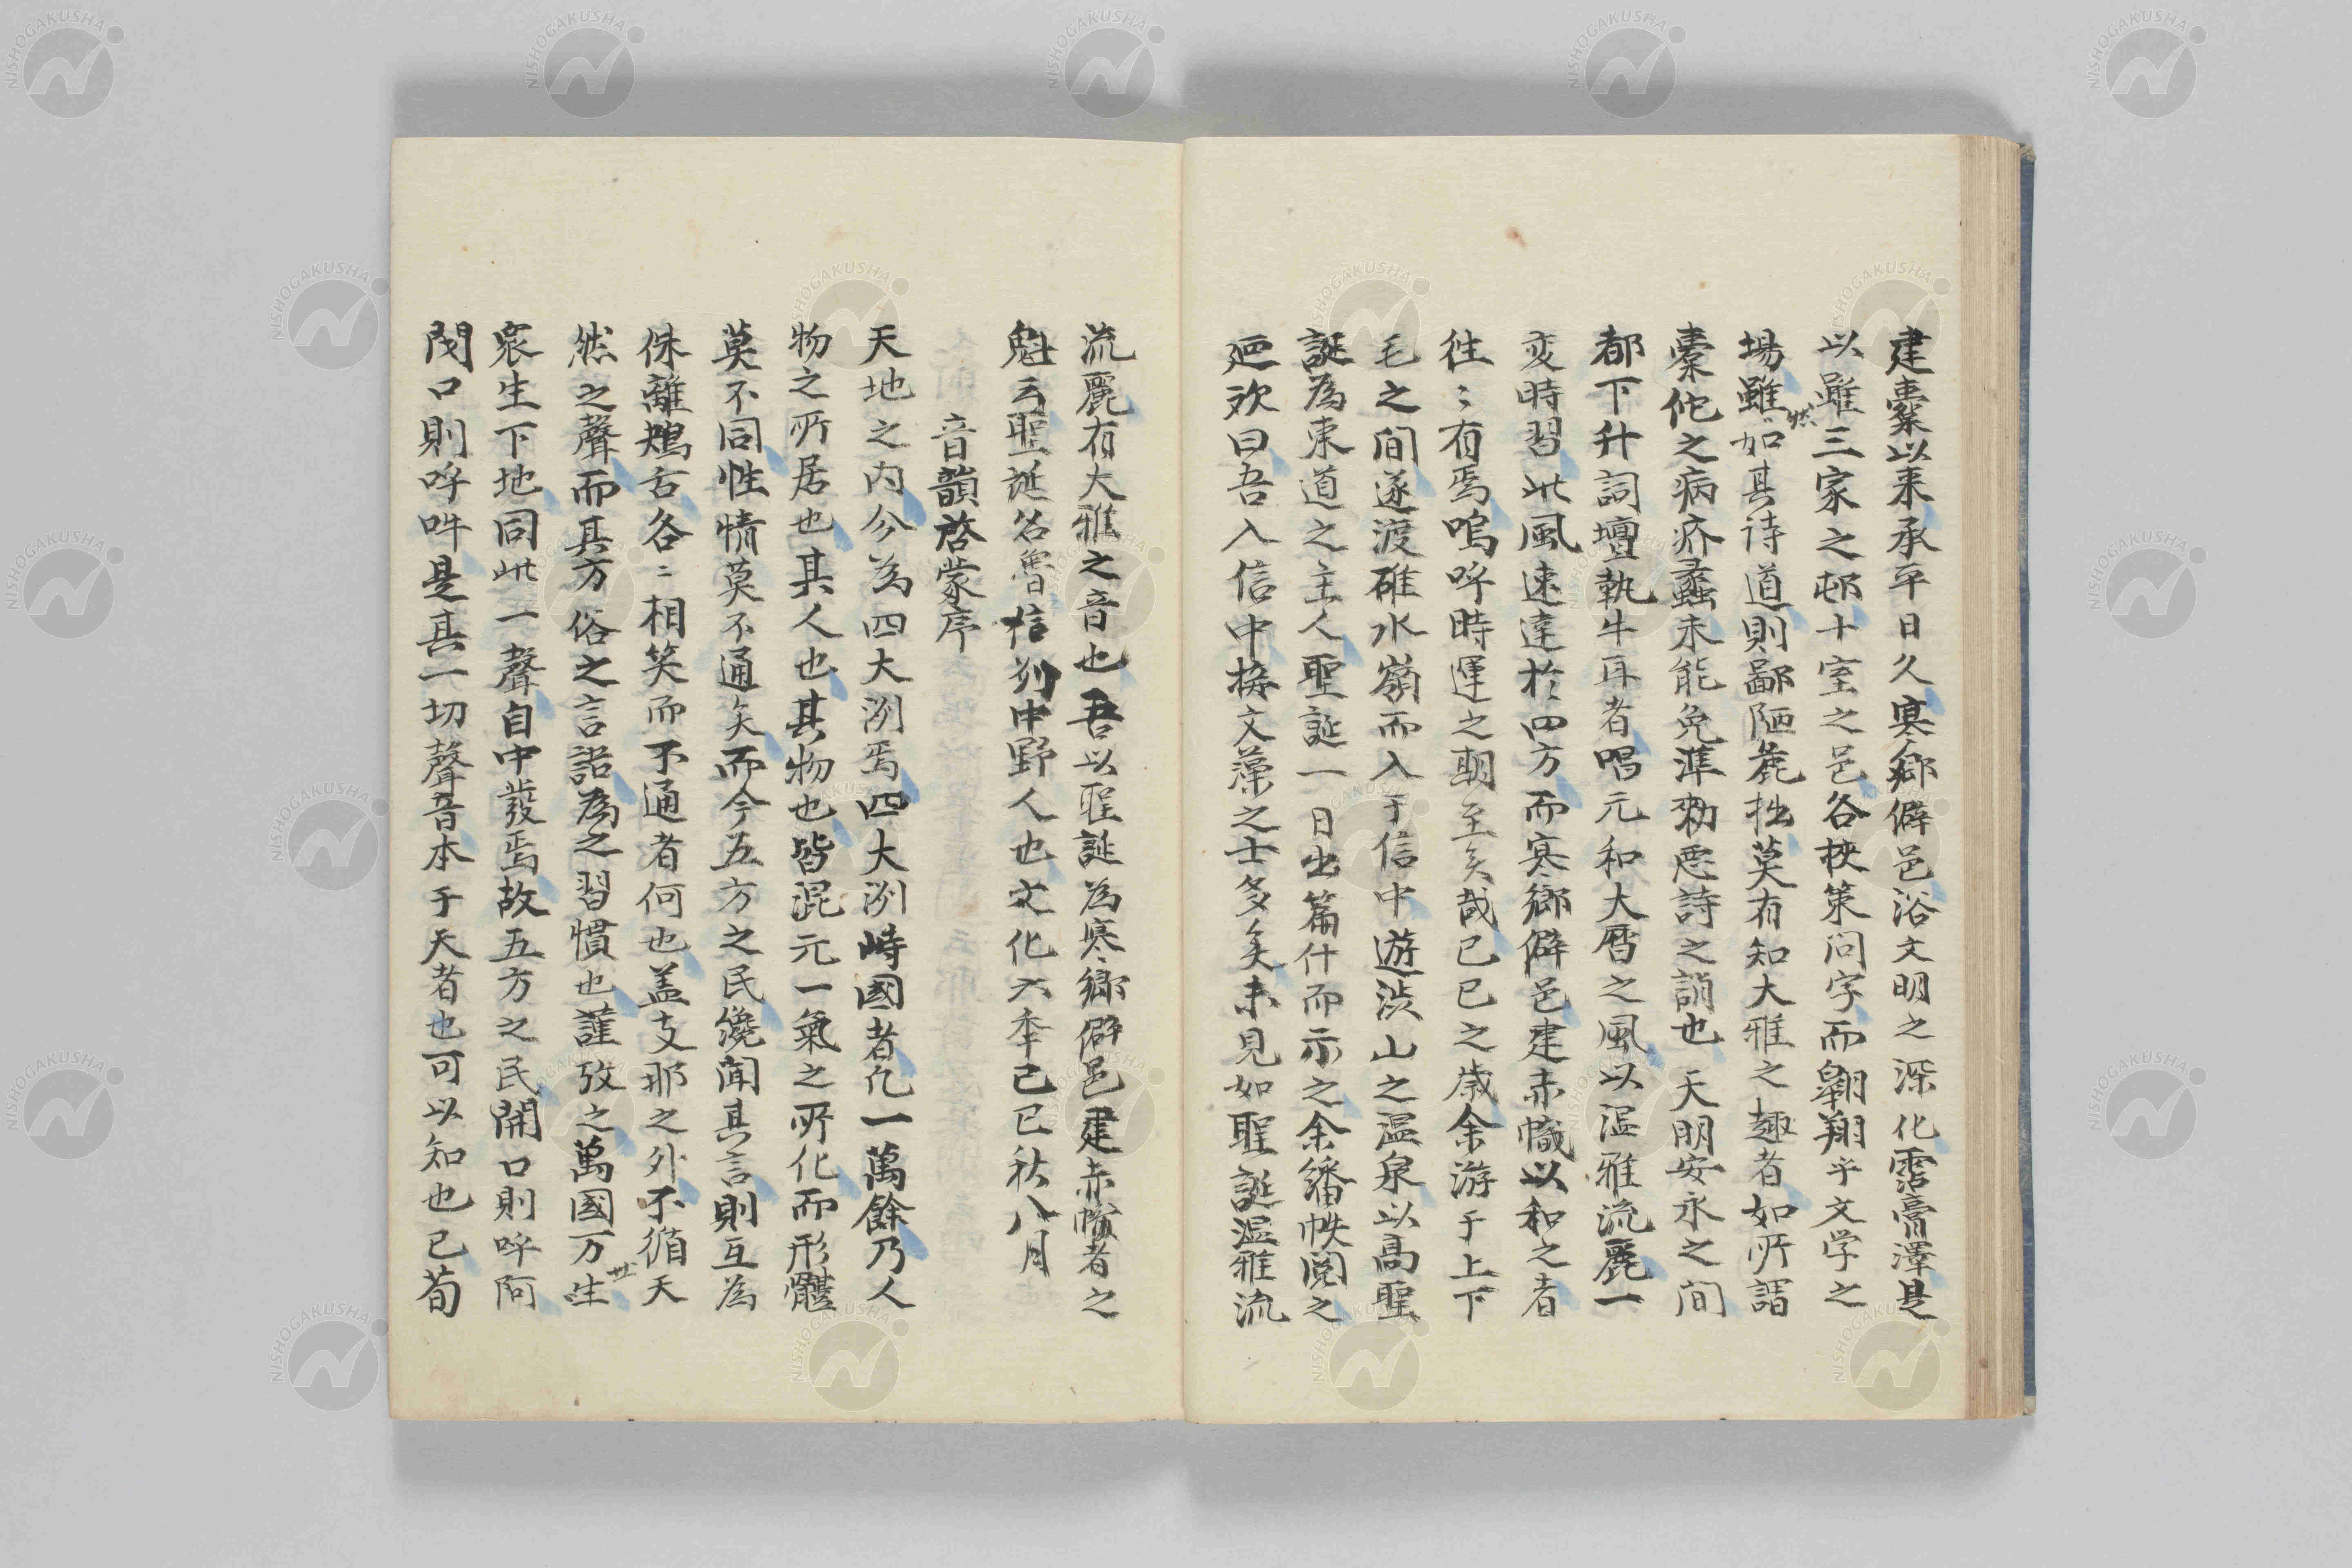 建櫜以来承平日久寒郷僻邑浴文明之深化霑膏澤是
以雖三家之邨十室之邑各挾策问字而翺翔乎文学之
場雖然如其诗道則鄙陋麁拙莫有知大雅之趣者如所謂
橐佗之病疥蠡未能免準勑悪詩之誚也天明安永之间
都下升詞壇執牛耳者唱元和大暦之風以温雅流麗一
変時習此風速達於四方而寒郷僻邑建赤幟以和之者
徃〻有焉嗚呼時運之期至矣哉己巳之歳余游于上下
毛之间遂渡碓水嶺而入于信中遊渋山之温泉以高聖
誕為東道之主人聖誕一日出篇什而示之余繙帙閲之
廻欢曰吾入信中接文藻之士多矣未見如聖誕温雅流
流麗有大雅之音也吾以聖誕為寒郷僻邑建赤幟者之
魁云聖誕名魯信列中野人也文化六季己巳秋八月
音韻啓蒙序
天地之内分為四大洲焉四大洲峙國者凢一萬餘乃人
物之所居也其人也其物也皆混元一氣之所化而形體
莫不同性情莫不通矣而今五方之民纔闻其言則互為
侏離鴂舌各〻相笑而不通者何也盖支那之外不循天
然之聲而其方俗之言語為之習慣也謹攷之萬國万生
衆生下地同此一聲自中發焉故五方之民開口則呼阿
閇口則呼吽是其一切聲音本于天者也可以知也已荀